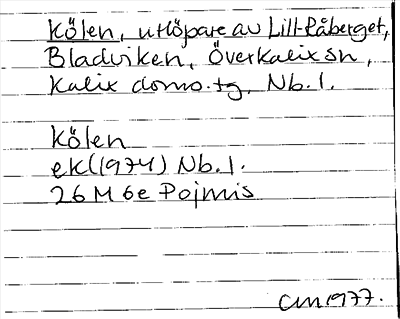 Kölen, utlöpare av Lill-Råberget,
Bladviken, Överkalix sn,
Kalix doms.tg, Nb.l.
Kölen
ek(1974) Nb.l.
26 M 6e Pojmis
CM 1977.